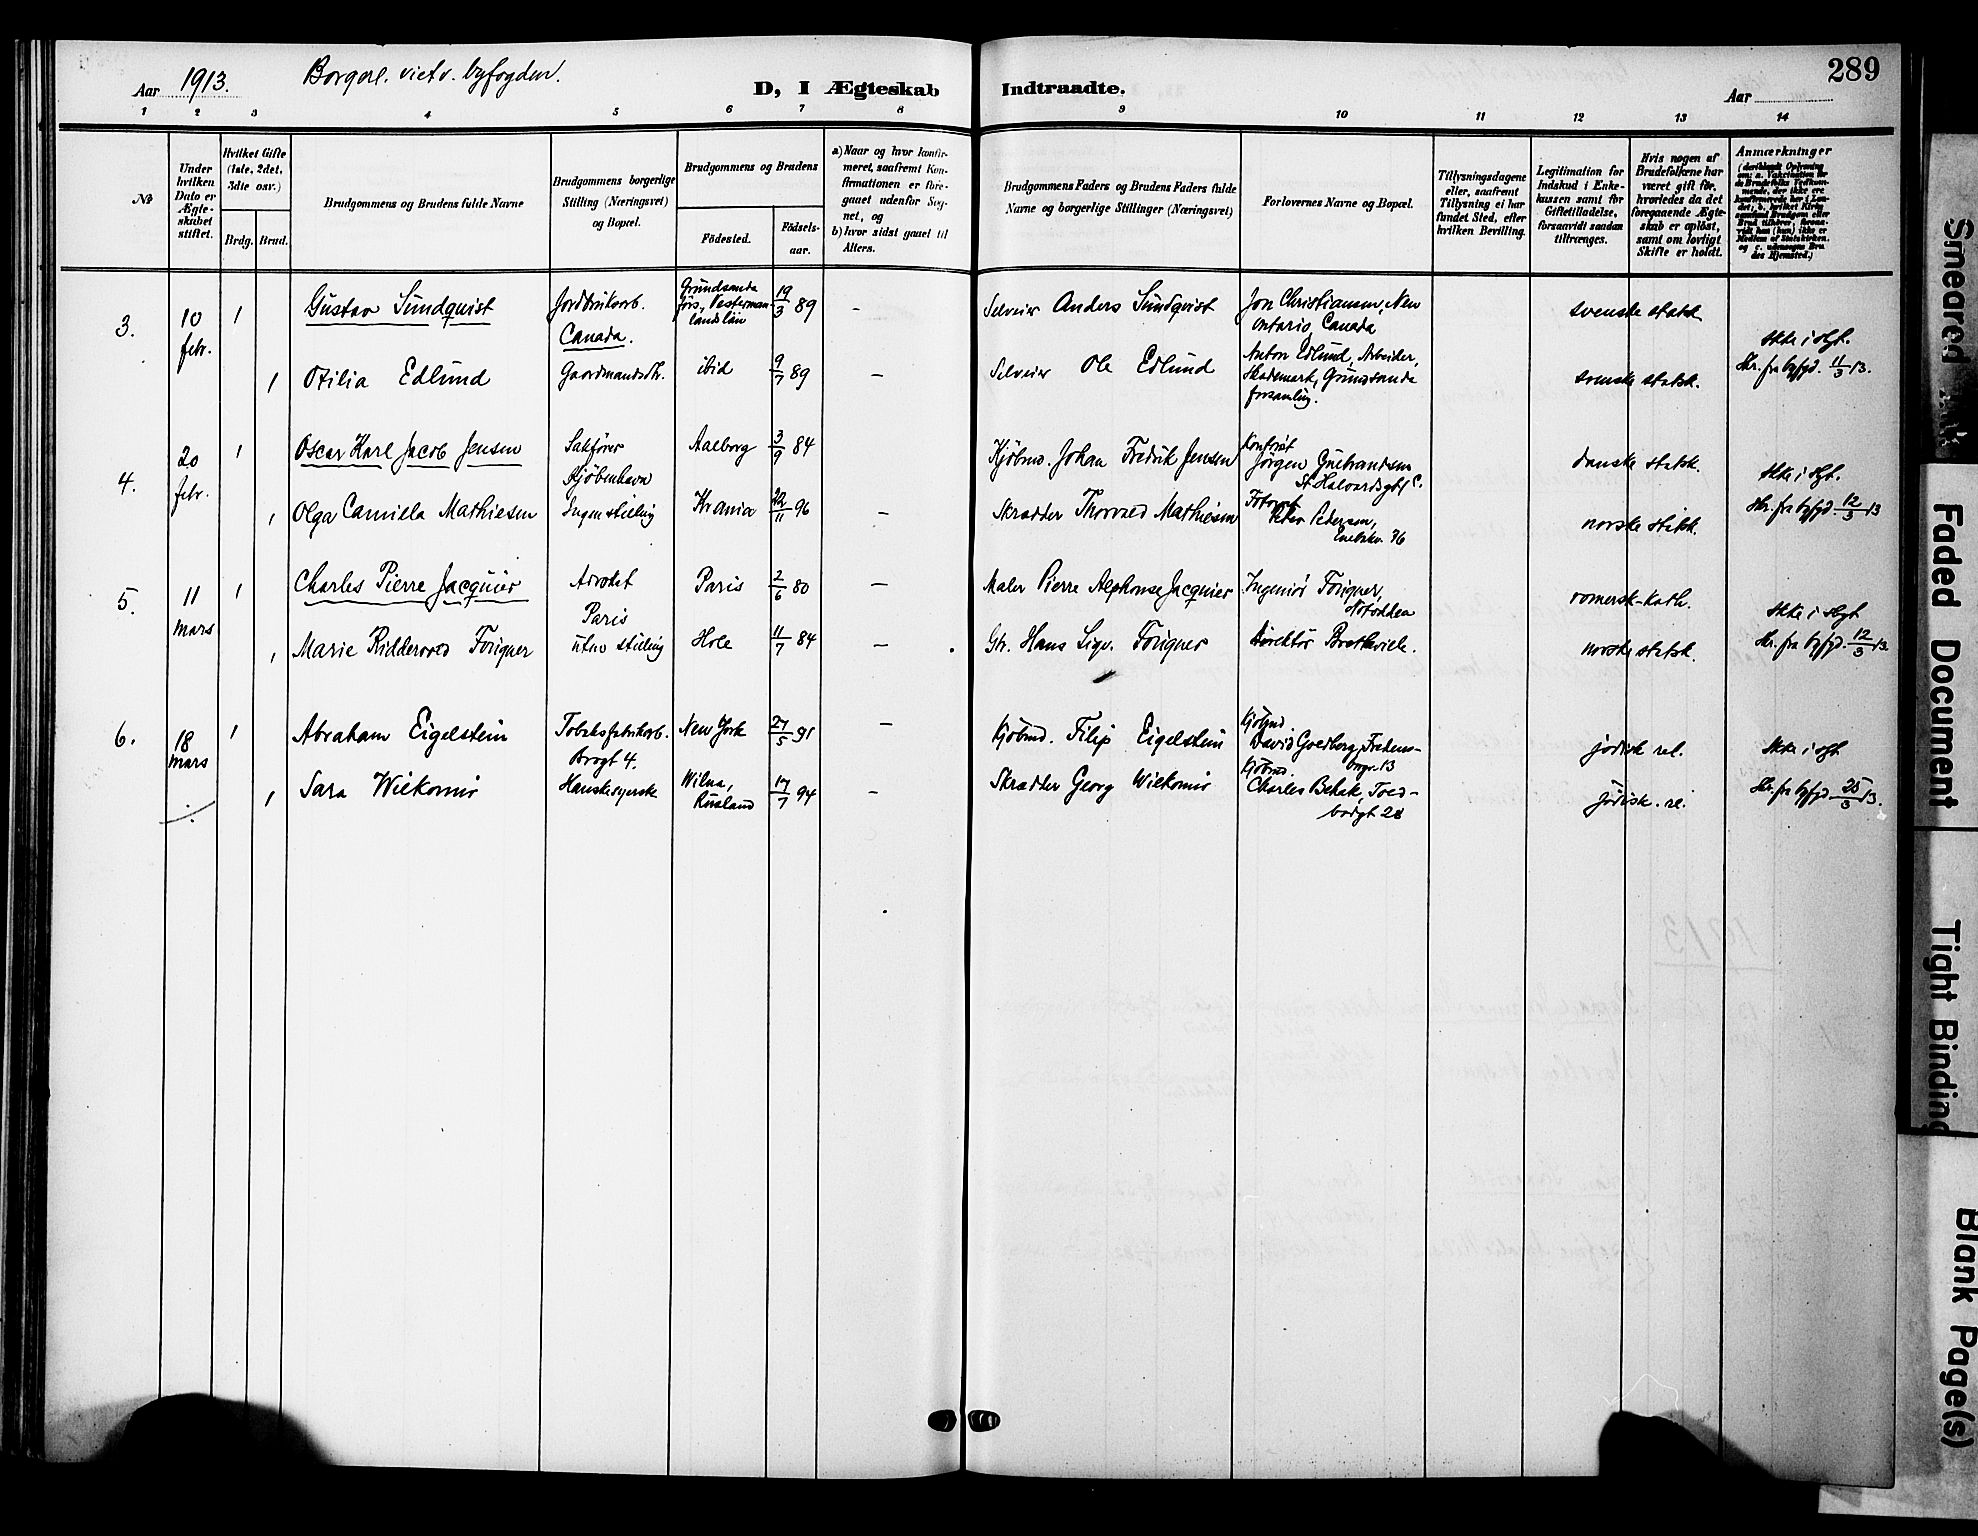 289
Aar 1913. Borgerl. viet v. byfogden.
D, I Ægteskab Indtraadte.
Aar
1 2 3 4 5 6 7 8 9 10 11 12 13 14
№
Under hvilken Dato er Ægteskabet stiftet.
Hvilket Gifte (1ste, 2det, 3die osv.)
Brdg. Brud.
Brudgommens og Brudens fulde Navne
Brudgommens borgerlige Stilling (Næringsvei) og Bopæl.
Brudgommens og Brudens
Fødested.
Fødselsaar.
a) Naar og hvor konfirmeret, saafremt Konfirmationen er foregaaet udenfor Sognet, og
b) hvor sidst gaaet til Alters.
Brudgommens Faders og Brudens Faders fulde Navne og borgerlige Stillinger (Næringsvei)
Forlovernes Navne og Bopæl.
Tillysningsdagene eller, saafremt Tillysning ei har fundet Sted, efter hvilken Bevilling.
Legitimation for Indskud i Enkekassen samt for Giftetilladelse, forsaavidt saadan tiltrænges.
Hvis nogen af Brudefolkene har været gift før, hvorledes da det foregaaende Ægteskab er opløst, samt om lovligt Skifte er holdt.
Anmærkninger
3. 10 febr. 1 Gustav Sundquist Jordbruksarb. Canada. Grundsunda førs., Vesternorlandslän 19/3 89 - Selveier Anders Sundqvist Jon Christiansen, New Ontario, Canada svenske statsk.
1 Otilia Edlund Gaardmandsdtr. ibid 9/7 89 - Selveier Ole Edlund Anton Edlund, Arbeider, Skademark, Grundsunda forsamling. svenske statsk. Ikke i slgt. Skr. fra byfgd. 11/3 13.
4. 20 febr. 1 Oscar Karl Jacob Jensen Sakfører Kjøbenhavn Aalborg 3/9 84 Kjøbmd. Johan Fredrik Jensen Kontorist Jørgen Gulbrandsen St Halvardsgt 1 c. danske statsk.
1 Olga Camilla Mathiesen Ingen stilling Krania 22/11 96 - Skrædder Thorvald Mathiesen Fotograf Peter Pedersen, Enebakv. 76 norske statsk. Ikke i slgt. Skr. fra byfgd. 12/3 13
5. 11 mars 1 Charles Pierre Jacquier Advokat Paris Paris 2/6 80 - Maler Pierre Alphonse Jacquier Ingeniør Fougner, Notodden romersk-kath.
1 Marie Riddervold Fougner uten stilling Hole 11/7 84 - Gr. Hans Sigv. Fougner Direktør Bratlievieh. norske statsk. Ikke i slgt Skr. fra byfgd. 12/3 13.
6. 18 mars 1 Abraham Eigelstein Tobaksfabrikarb. Brogt 4. New York 27/5 91 - Kjøbmd. Filip Eigelstein Kjøbmd David Goldberg, Fredensborgv. 13 jødisk rel.
1 Sara Wilkomir Hanskesyerske Wilna, Rusland 17/7 94 - Skrædder Georg Wilkomir Kjøbmd. Charles Behak, Toldbodgt 28 jødisk. rel. Ikke i slgt Skr. fra byfgd 25/3 13.
Smeared Ink
Faded Document
Tight Binding
Blank Page(s)